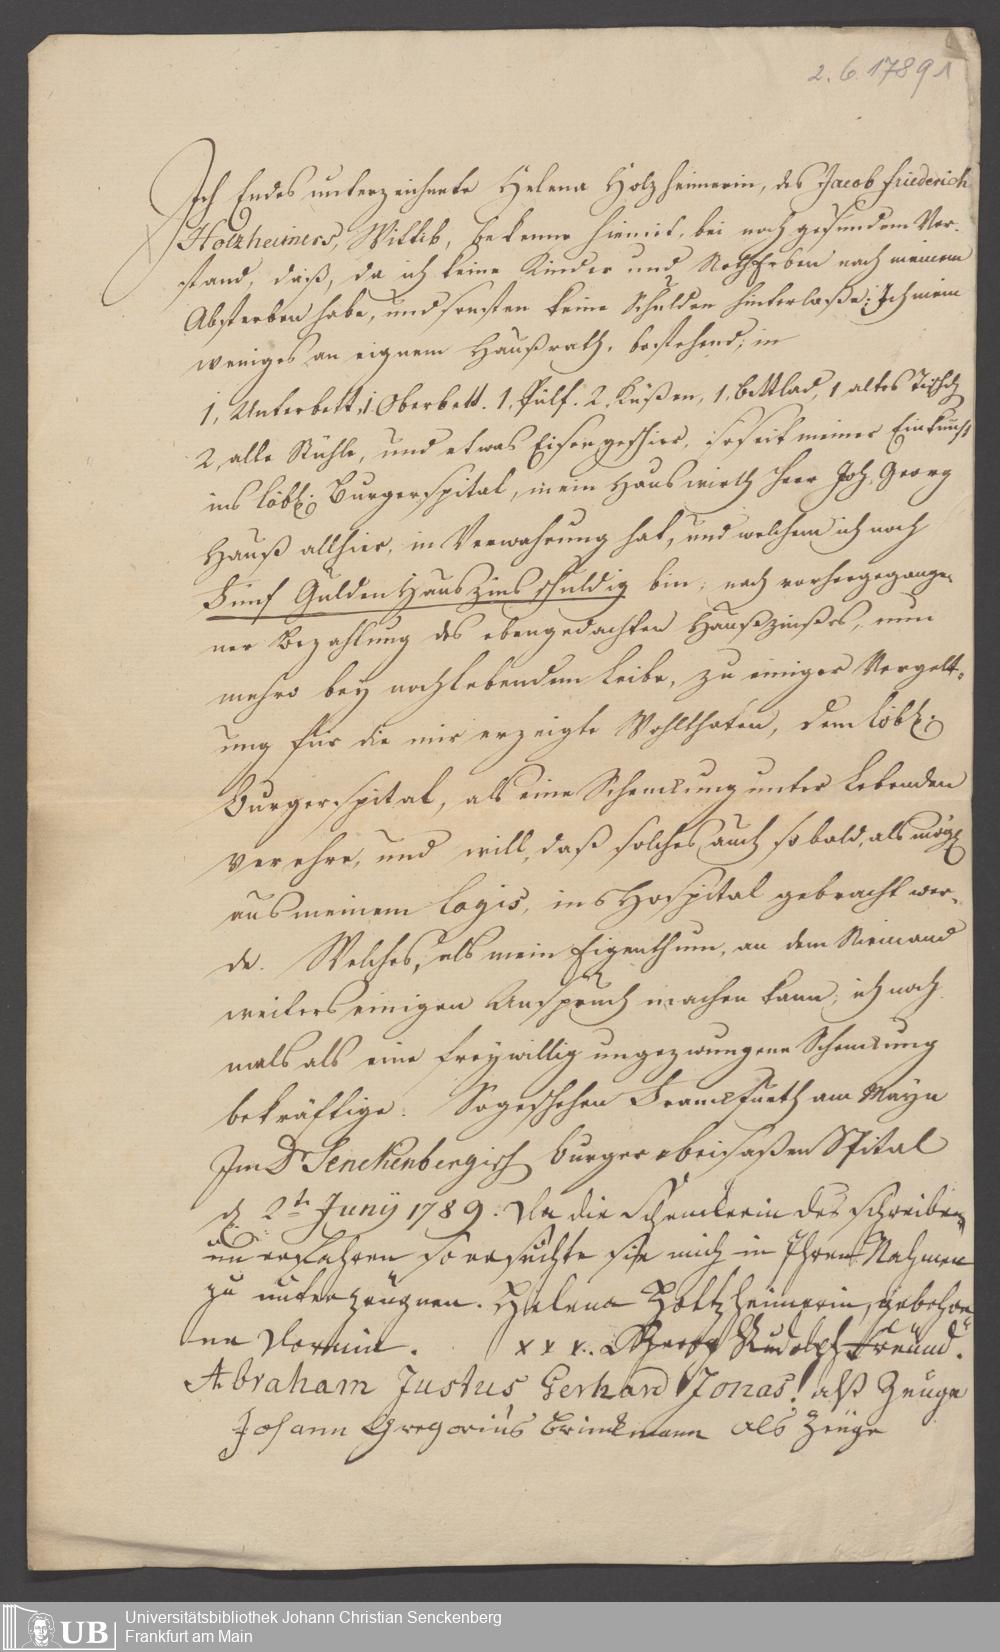 2. 6. 1789 1
Ich Endes unterzeichnete Helena Holzheimerin, des Jacob friederich
Holzheimers, Wittib, bekenne hiemit, bei noch gesundem Ver-
stand, daß, da ich keine Kinder und NothErben nach meinem
Absterben habe, und sonsten keine Schulden hinterlaße; Ich mein
weniges an eignem Haußrath, bestehend, in
1, Unterbett, 1 Oberbett. 1, Pülf. 2, Küßen, 1, bettlad, 1 altes Tischgen
2, alte Stühle, und etwas Eisengeschirr, so seit meiner Einkunft
ins löbl: Burgerspital, mein Hauswirth Herr Joh. Georg
Hauß allhier, in Verwahrung hat, und welchem ich noch
Fünf Gulden Hauszins schuldig bin; nach vorhergegange-
ner Bezahlung des ebengedachten Haußzinßes, nun
mehro bey nochlebendem Leibe, zu einiger Vergelt-
ung für die mir erzeigte Wohlthaten, dem löbl:
Burgerspital, als eine Schenckung unter Lebenden
verehre, und will, daß solches auch so bald, als mögl
aus meinem Logis, ins Hospital gebracht wer-
de. Welches, als mein Eigenthum, an dem Niemand
weiters einigen Anspruch machen kann, ich noch
mals als eine freywillig ungezwungene Schenckung
bekräftige. So geschehen Franckfurth am Mayn
Im Dr Senckenbergisch burger u beisaßen Spital
d. 2te Junÿ 1789. Da die Schenckerin des schreibens
unerfahren so ersuchte sie mich in Ihren Nahmen
zu unterzeugnen. Helena Holtzheimerin, gebohre
ne Dornin. x x x. Georg Rudolph Freund.
Abraham Justus Gerhard Jonas. alß Zeuge
Johann Gregorius Brinckmann als Zeuge
UB
Universitätsbibliothek Johann Christian Senckenberg
Frankfurt am Main